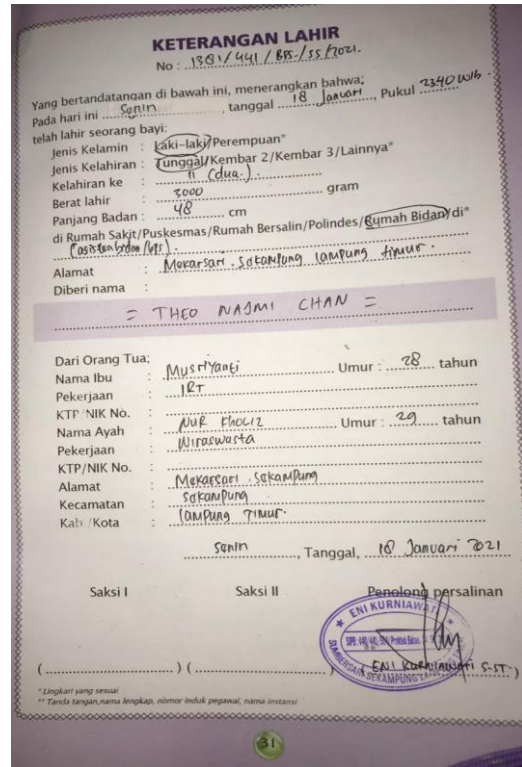 KETERANGAN LAHIR
No : 1381/441/BPS-/SS/2021.
Yang bertandatangan di bawah ini, menerangkan bahwa;
Pada hari ini Senin, tanggal 18 Januari, Pukul 2340 Wib.
telah lahir seorang bayi:
Jenis Kelamin : Laki-laki/Perempuan*
Jenis Kelahiran : Tunggal/Kembar 2/Kembar 3/Lainnya*
Kelahiran ke : II (dua.)
Berat lahir : 3000 gram
Panjang Badan : 48 cm
di Rumah Sakit/Puskesmas/Rumah Bersalin/Polindes/Rumah Bidan/di*
Alamat : Mekarsari. Sekampung lampung timur.
Diberi nama :
= THEO NAJMI CHAN =
Dari Orang Tua;
Nama Ibu : Musriyanti Umur : 28 tahun
Pekerjaan : IRT
KTP/NIK No. :
Nama Ayah : NUR KHOLIZ Umur : 29 tahun
Pekerjaan : Wiraswasta
KTP/NIK No. :
Alamat : Mekarsari Sekampung
Kecamatan : Sekampung
Kab/Kota : lampung TIMUR.
Senin, Tanggal, 18 Januari 2021
Saksi I Saksi II Penolong persalinan
ENI KURNIAWATI
(ENI KURNIAWATI S-ST.)
* Lingkari yang sesuai
** Tanda tangan, nama lengkap, nomor induk pegawai, nama instansi
31